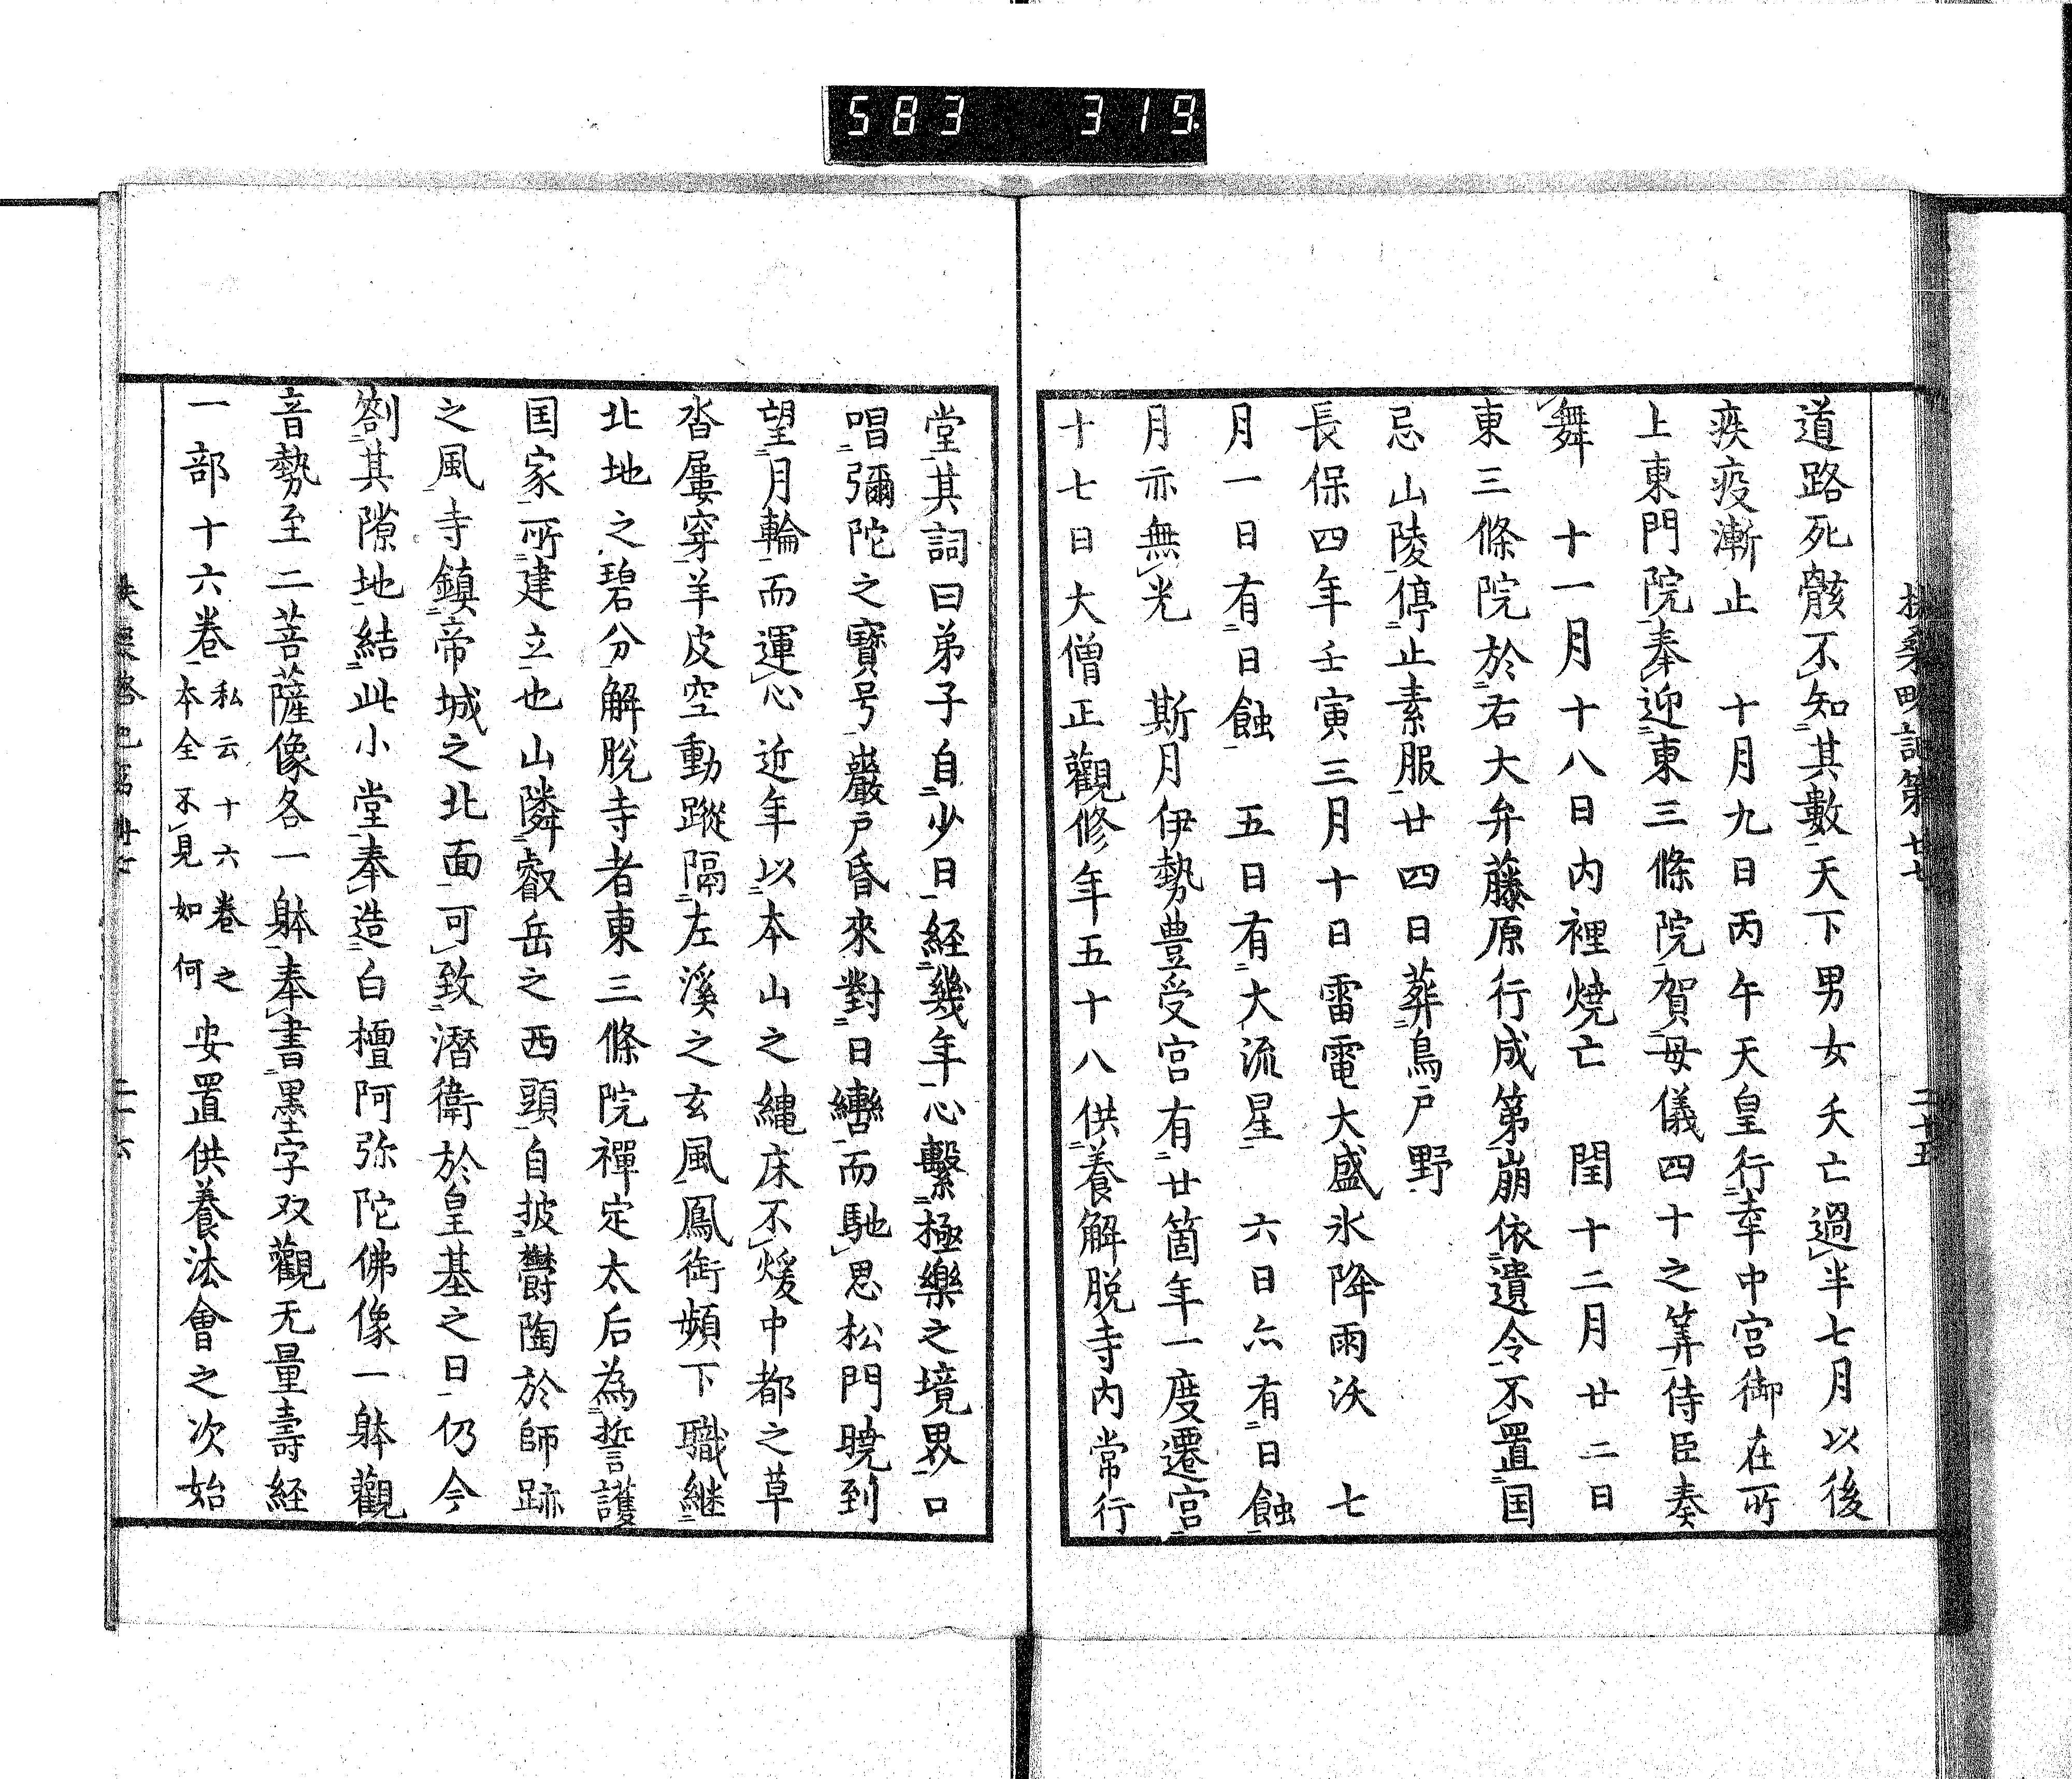 583 319
扶桑略記第廿七 二十五
道路死骸不知其數天下男女夭亡過半七月以後
疾疫漸止 十月九日丙午天皇行幸中宮御在所
上東門院奉迎東三條院賀母儀四十之筭侍臣奏
舞 十一月十八日内裡燒亡 閏十二月廿二日
東三條院於右大弁藤原行成第崩依遺令不置国
忌山陵停止素服廿四日葬鳥戸野
長保四年壬寅三月十日雷電大盛氷降雨沃 七
月一日有日蝕 五日有大流星 六日亦有日蝕
月亦無光 斯月伊勢豊受宮有廿箇年一度遷宮
十七日大僧正觀修年五十八供養解脱寺内常行
堂其詞曰弟子自少日經幾年心繫極樂之境界口
唱彌陀之寶号巖戸昏來對日轡而馳思松門曉到
望月輪而運心近年以本山之繩床不煖中都之草
沓屢穿羊皮空動蹤隔左溪之玄風鳳銜頻下職継
北地之碧分解脱寺者東三條院禪定太后為誓護
国家所建立也山隣叡岳之西頭自披欝陶於師跡
之風寺鎮帝城之北面可致潛衛於皇基之日仍今
劄其隙地結此小堂奉造白檀阿弥陀佛像一躰觀
音勢至二菩薩像各一躰奉書墨字双觀无量壽経
一部十六巻 私云十六巻之本全不見如何 安置供養法會之次始
二十六